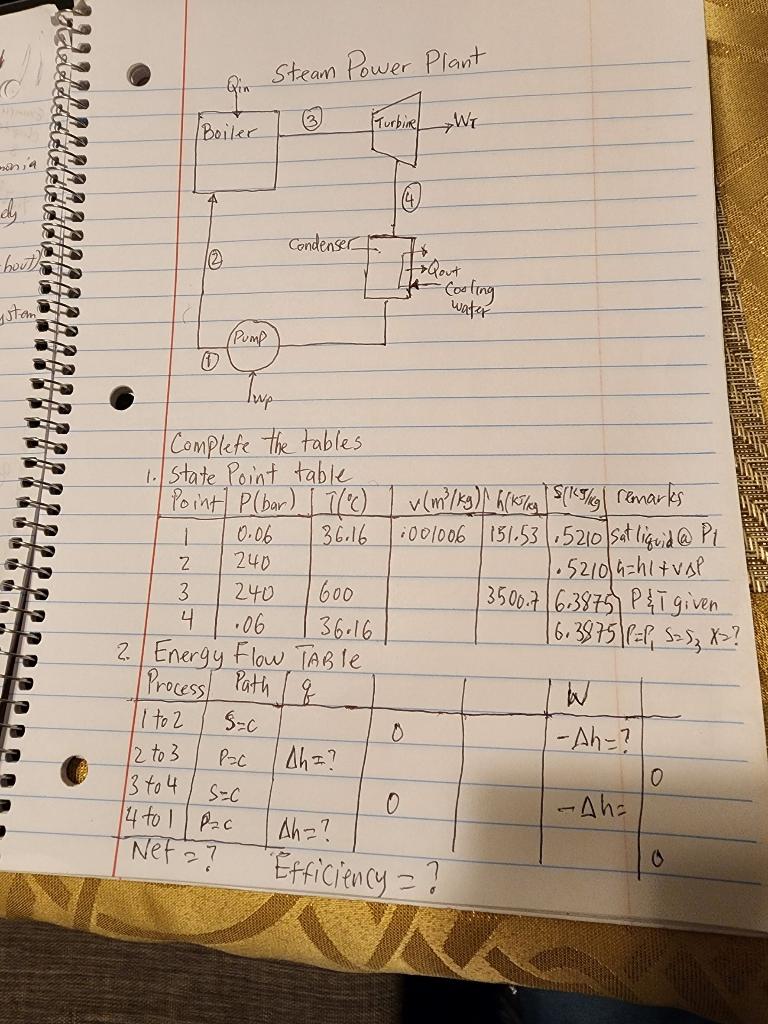 Steam Power Plant
Qin
Boiler
3
Turbine
WT
4
Condenser
2
Qout
Cooling
water
Pump
1
Wp
Complete the tables
1. State Point table
Point P(bar) T(°C) v(m³/kg) h(KJ/kg S(KJ/kg) remarks
1 0.06 36.16 .001006 151.53 .5210 Sat liquid @ P1
2 240 .5210 h=h1+v∆P
3 240 600 3500.7 6.3875 P & T given
4 .06 36.16 6.3875 P=P1 S=S3 X=?
2. Energy Flow TABLE
Process Path q W
1 to 2 S=C 0 -∆h=?
2 to 3 P=C ∆h=? 0
3 to 4 S=C 0 -∆h=
4 to 1 P=C ∆h=? 0
Net=? Efficiency=?
hout)